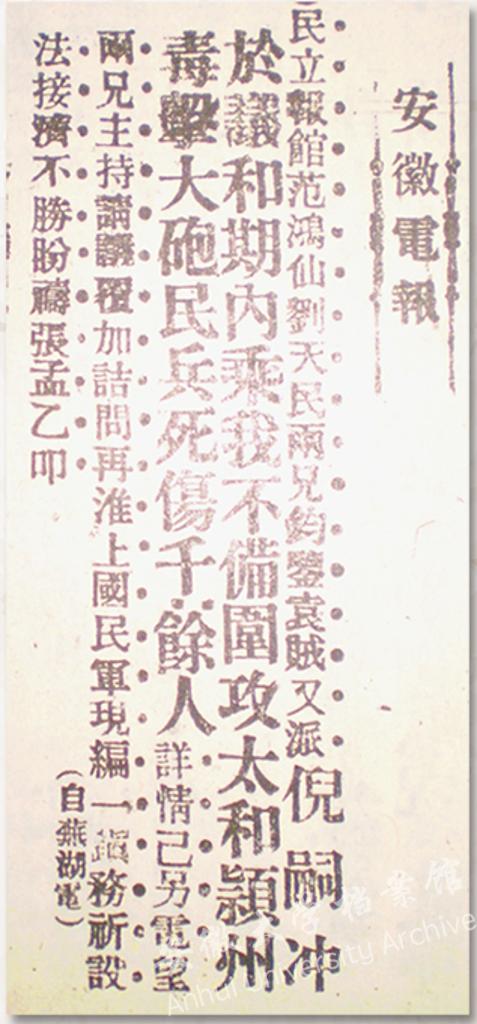 安徽電報
(民立報館范鴻仙劉天民兩兄鈞鑒袁賊又派倪嗣冲
於議和期內乘我不備圍攻太和潁州
毒擊大砲民兵死傷千餘人詳情已另電望
兩兄主持請議覆加詰問再淮上國民軍現編一鎮務祈設
法接濟不勝盼禱張孟乙叩
(自蕪湖電)
安徽大学档案馆
Anhui University Archive